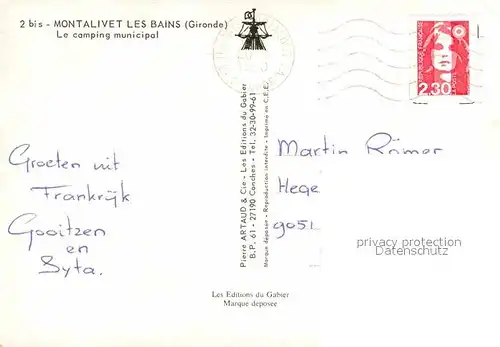 2 bis - MONTALIVET LES BAINS (Gironde)
Le camping municipal
RÉPUBLIQUE FRANÇAISE
LA POSTE
2,30
Groeten uit
Frankrijk
Gooitzen
en
Syta.
Pierre ARTAUD & Cie - Les Editions du Gabier
B.P. 61 - 27190 Conches - Tél. 32-30-99-61
Marque déposée - Reproduction interdite - Imprimé en C.E.E.
Martin Römer
Hege
9051
privacy protection
veikkos.com
Les Editions du Gabier
Marque deposee